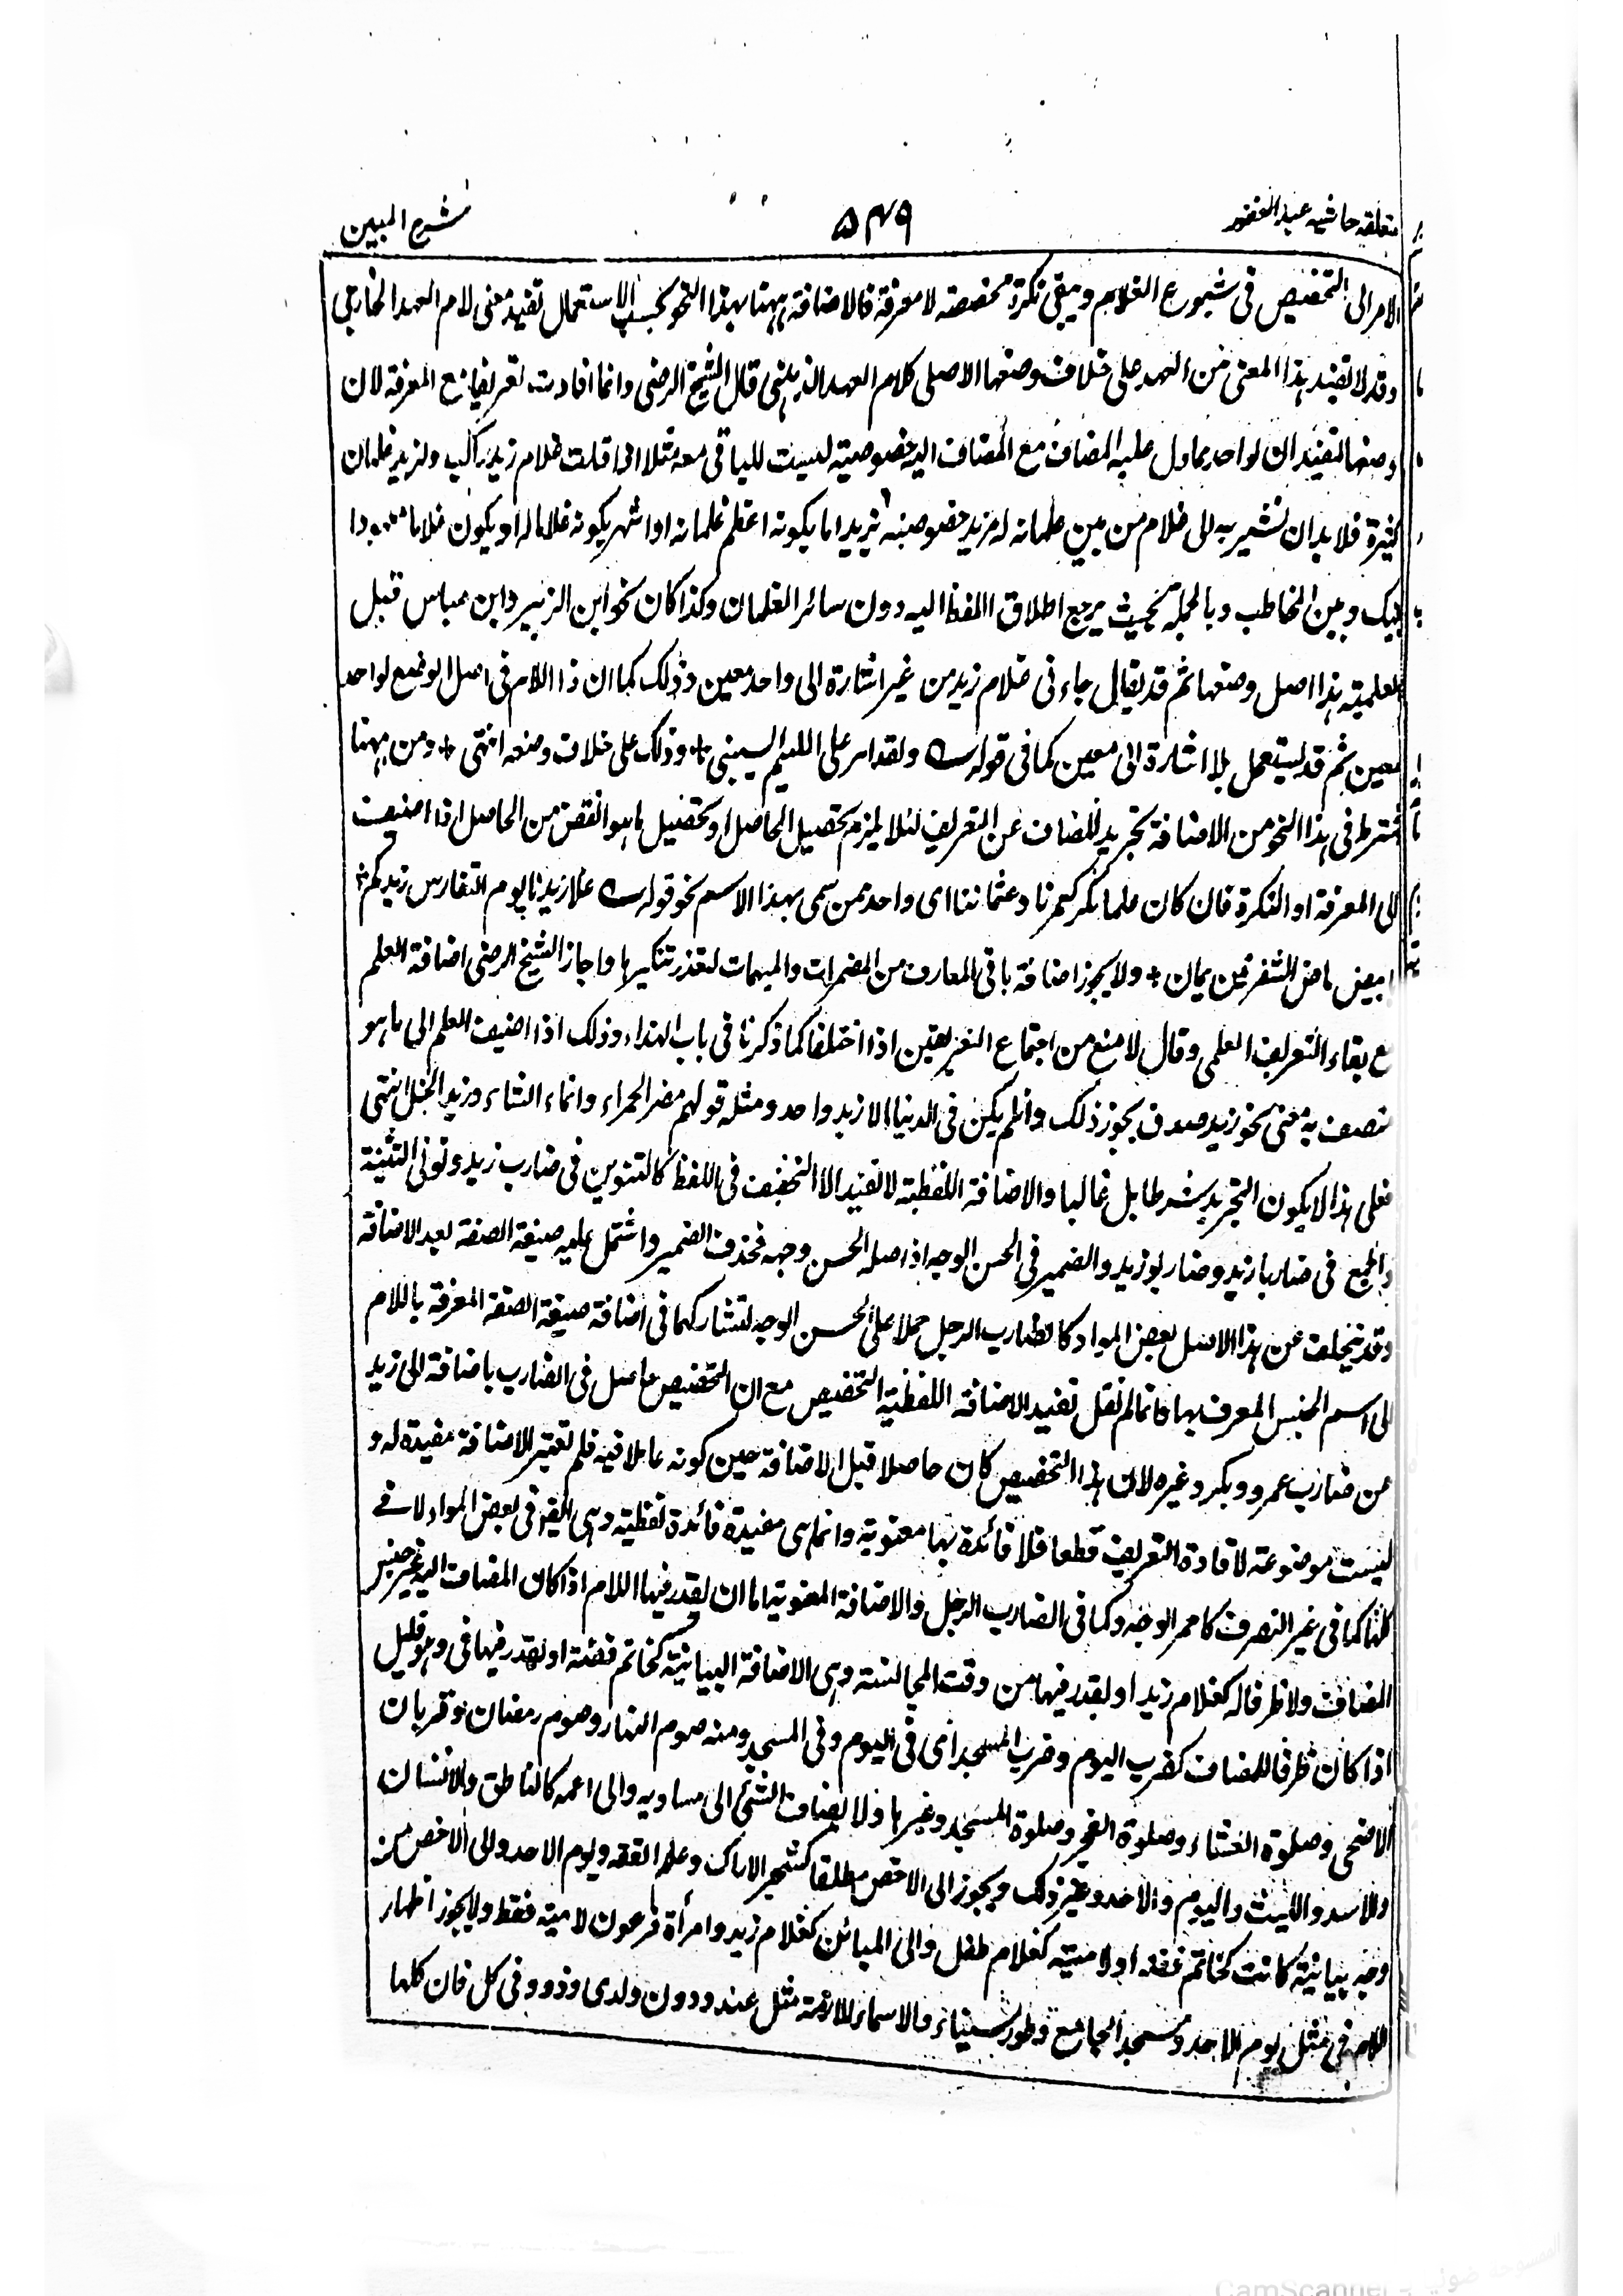 متعلقه حاشیه عبد الغفور ۵۴۹ شرح المبین
الامر الى التخصيص فى شيوع الغلام ويبقى نكرة مخصصة لا معرفة فالاضافة ههنا بهذا النحو بحسب الاستعمال تفيد معنى لام العهد الخارجى
وقد لا تفيد هذا المعنى من العهد على خلاف وضعها الاصلى كلام العهد الذهنى قال الشيخ الرضى وانما افادت تعريفا مع المعرفة لان
وضعها لتفيد ان لواحد مما دل عليه المضاف مع المضاف اليه خصوصية ليست للباقى معه مثلا اذا قلت غلام زيد راكب ولزيد غلمان
كثيرة فلا بد ان تشير به الى غلام من بين غلمانه له مزيد خصوصية بزيد اما بكونه اعظم غلمانه او اشهر بكونه غلاما له او يكون غلاما معهودا
بينك وبين المخاطب وبالجملة بحيث يرجع اطلاق اللفظ اليه دون سائر الغلمان وكذا كان نحو ابن الزبير وابن عباس قبل
العلمية هذا اصل وضعها ثم قد يقال جاءنى غلام زيد من غير اشارة الى واحد معين وذلك كما ان ذا اللام فى اصل الوضع لواحد
معين ثم قد يستعمل بلا اشارة الى معين كما فى قوله ولقد امر على اللئيم يسبنى * وذلك على خلاف وضعه انتهى * ومن ههنا
يشترط فى هذا النحو من الاضافة تجريد المضاف عن التعريف لئلا يلزم تحصيل الحاصل او تحصيل ما هو انقص من الحاصل اذا اضيفت
الى المعرفة او النكرة فان كان علما نكر كعمرنا وعثماننا اى واحد ممن سمى بهذا الاسم نحو قوله علا زيدنا يوم النقا رأس زيدكم *
بابيض ماضى الشفرتين يمان * ولا يجوز اضافة باقى المعارف من المضمرات والمبهمات لتعذر تنكيرها واجاز الشيخ الرضى اضافة العلم
مع بقاء التعريف العلمى وقال لا منع من اجتماع التعريفين اذا اختلفا كما ذكرنا فى باب النداء وذلك اذا اضيف العلم الى ما هو
متصف به معنى نحو زيد صدق يجوز ذلك وان لم يكن فى الدنيا الا زيد واحد ومثله قولهم مضر الحمراء وانمار الشاء وزيد الخيل انتهى
فعلى هذا لا يكون التجريد شرطا بل غالبا والاضافة اللفظية لا تفيد الا التخفيف فى اللفظ كالتنوين فى ضارب زيد ونونى التثنية
والجمع فى ضاربا زيد وضاربو زيد والضمير فى الحسن الوجه اذ اصله الحسن وجهه فحذف الضمير واشتمل عليه صيغة الصفة بعد الاضافة
وقد يتخلف عن هذا الاصل بعض المواد كالضارب الرجل حملا على الحسن الوجه لتشاركهما فى اضافة صيغة الصفة المعرفة باللام
الى اسم الجنس المعرف بها وانما لم نقل تفيد الاضافة اللفظية التخصيص مع ان التخصيص حاصل فى الضارب باضافة الى زيد
من ضارب عمرو وبكر وغيره لان هذا التخصيص كان حاصلا قبل الاضافة حين كونه عاملا فيه فلم تعتبر الاضافة مفيدة له و
ليست موضوعة لافادة التعريف قطعا فلا فائدة بها معنوية وانما هى مفيدة فائدة لفظية وهى ايضا فى بعض المواد لا فى
كلها كما فى غير المنصرف كاحمر الوجه وكما فى الضارب الرجل والاضافة المعنوية اما ان يقدر فيها اللام اذا كان المضاف اليه غير جنس
المضاف ولا ظرفا له كغلام زيد او يقدر فيها من وقت المجانسة وهى الاضافة البيانية كخاتم فضة او يقدر فيها فى وهو قليل
اذا كان ظرفا للمضاف كضرب اليوم وضرب المسجد اى فى اليوم وفى المسجد ومنه صوم النهار وصوم رمضان وقربان
الاضحى وصلوة العشاء وصلوة الفجر وصلوة المسجد وغيرها ولا يضاف الشئ الى مساويه والى اعمه كالناطق والانسان
والاسد والليث واليوم والاحد وغير ذلك ويجوز الى الاخص مطلقا كشجر الاراك وعلم الفقه ويوم الاحد والى الاخص من
وجه بيانية كانت كخاتم فضة او لامية كغلام طفل والى المبائن كغلام زيد وامرأة فرعون لامية فقط ولا يجوز اظهار
اللام فى مثل يوم الاحد ومسجد الجامع وطور سيناء والاسماء اللازمة مثل عند ودون ولدى وذو وفى كل فان كلها